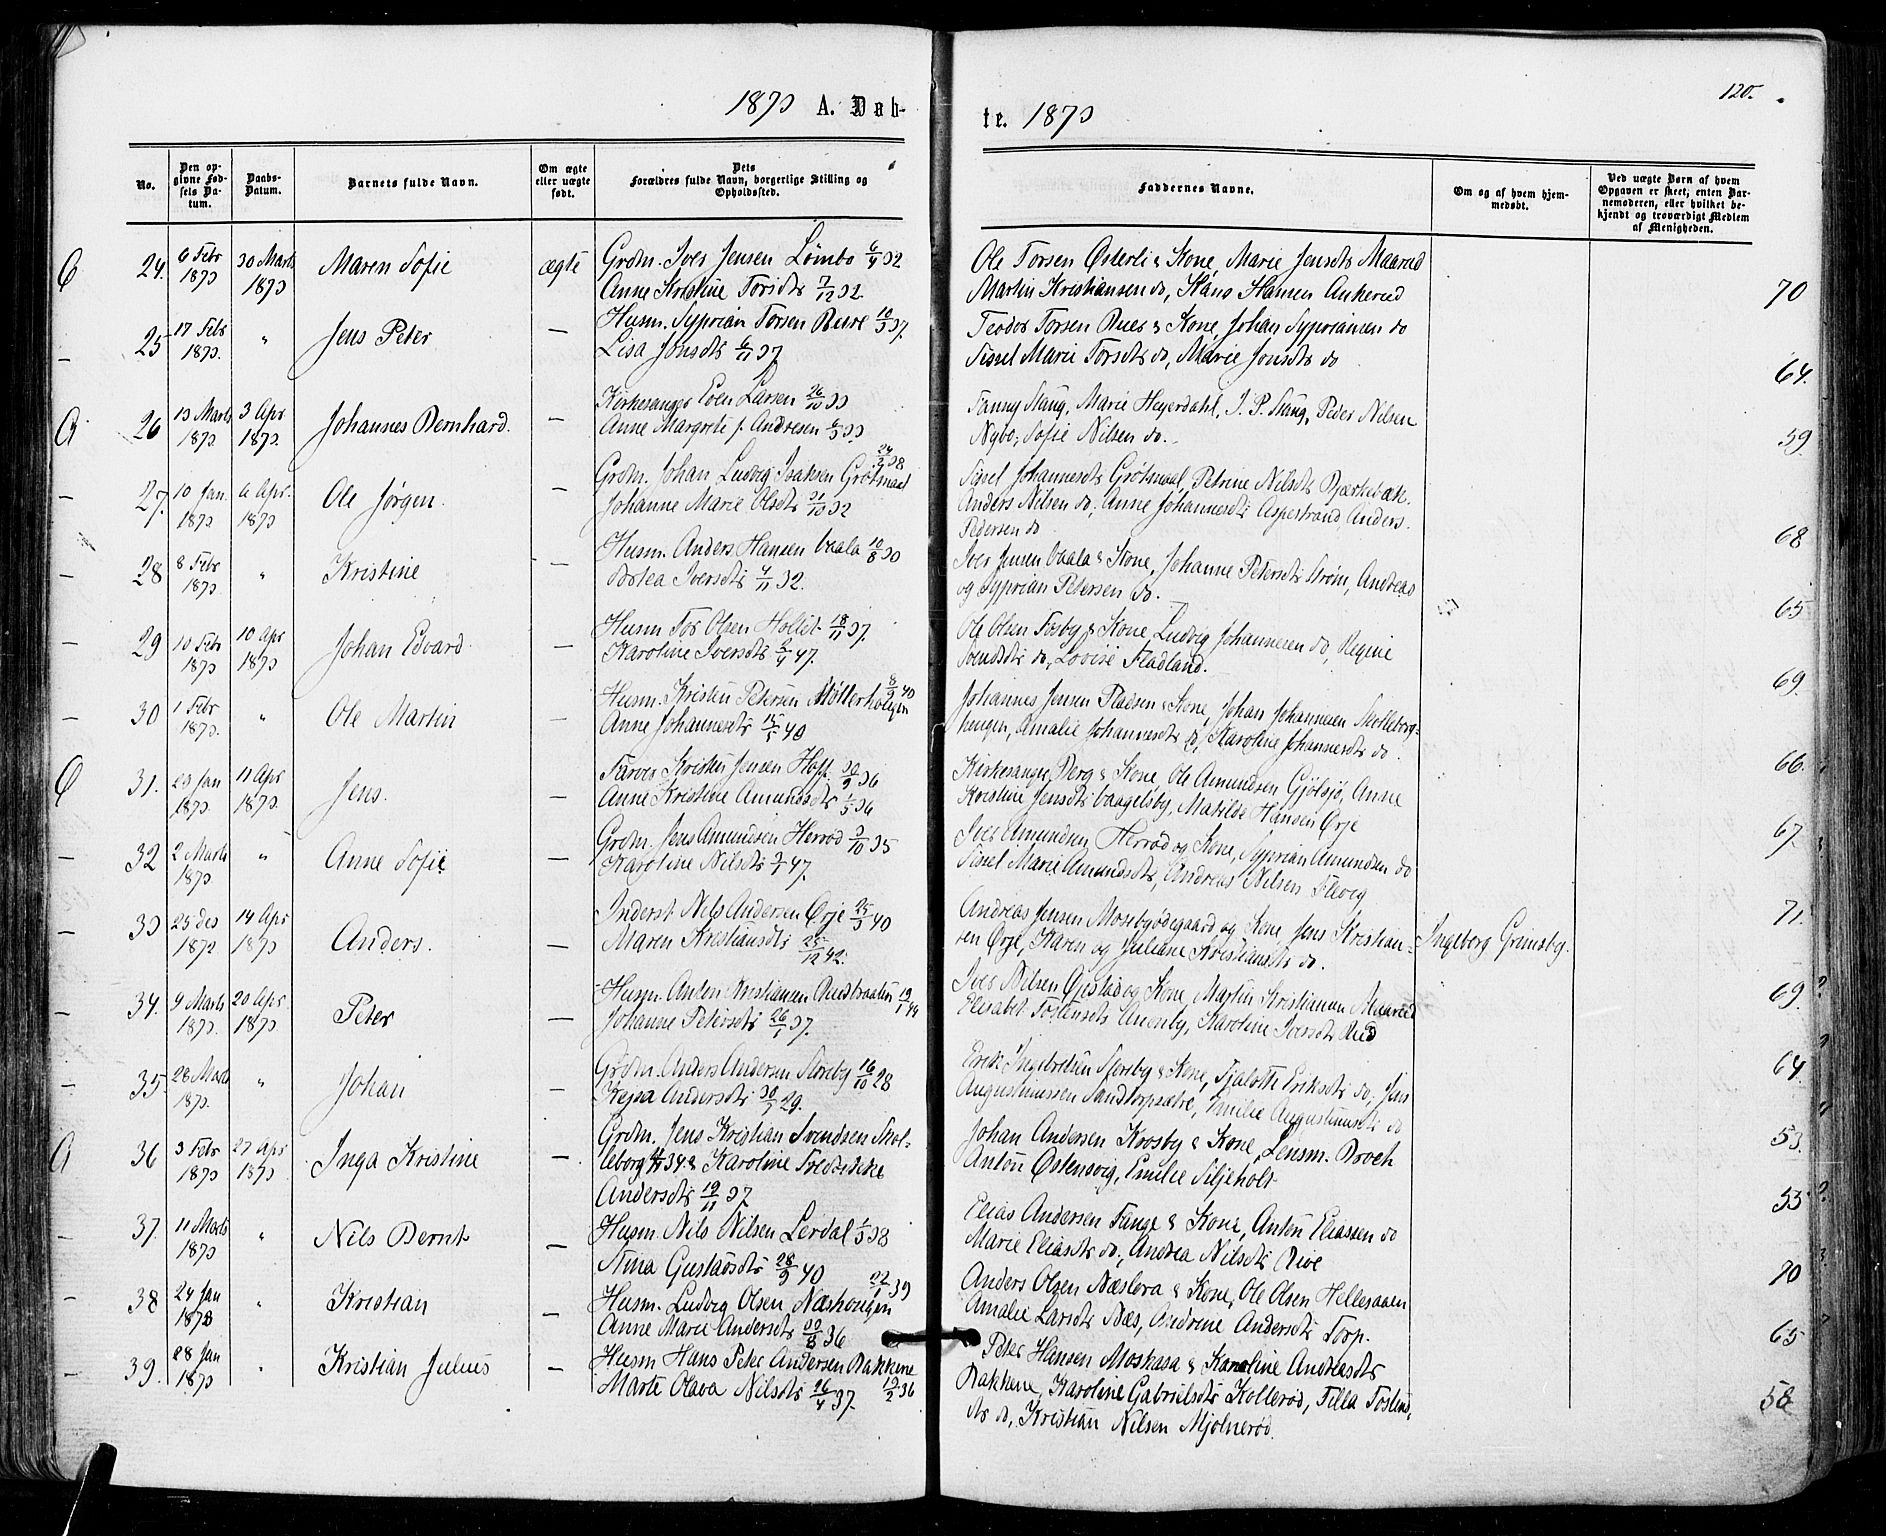 120.
1873 A. Døb-
te. 1873
No.
Den op-
givne Fød-
sels Da-
tum.
Daabs-
Datum.
Barnets fulde Navn.
Om ægte
eller uægte
født.
Dets
Forældres fulde Navn, borgerlige Stilling og
Opholdssted.
Faddernes Navne.
Om og af hvem hjem-
medøbt.
Ved uægte Børn af hvem
Opgaven er skeet, enten Bar-
nemoderen, eller hvilket be-
kjendt og troværdigt Medlem
af Menigheden.
24. 6 Febr 1873 30 Marts 1873 Maren Sofie ægte
Grdm. Iver Jensen Lömbo 6/4 32
Anne Kristine Torsdtr 7/12 32.
Ole Torsen Østerli & Kone, Marie Jensdtr Maarud
Martin Kristiansen do, Hans Hansen Ankerud
70
25 17 Febr 1873. " Jens Peter —
Husm. Syprian Torsen Buer 10/3 37.
Lisa Jonsdtr 6/11 37.
Teodor Torsen Buer & Kone, Johan Syprianen do
Sissel Marie Torsdtr do, Marie Jonsdtr do
64.
26 13 Marts 1873 3 Apr 1873. Johannes Bernhard. —
Kirkesanger Even Larsen 26/10 33
Anne Margrete f. Andresen 6/3 33
Fanny Stang, Marie Heyerdahl, J. P. Stang, Peder Nilsen
Nybo, Sofie Nilsen do.
59.
27. 10 Jan. 1873 6 Apr. 1873 Ole Jørgen. —
Grdm. Johan Ludvig Isaksen Grøtmaal 24/2 38
Johanne Marie Olsdtr 21/10 32
Sissel Johannesdtr Grøtmaal, Petrine Nilsdtr Bjærkebæk.
Anders Nilsen do, Anne Johannesdtr Aspestrand, Anders
Pedersen do
68
28 8 Febr 1873. " Kristine —
Husm. Anders Hansen Vaala 10/8 30
Botea Iversdtr 4/11 32.
Iver Jensen Vaala & Kone, Johanne Petersdtr Strøm, Andreas
og Syprian Petersen do.
65
29 10 Febr 1873 10 Apr 1873 Johan Edvard. —
Husm Tor Olsen HolLet 18/11 37.
Karoline Iversdtr 2/4 47.
Ole Olsen Fosby & Kone, Ludvig Johannesen do, Regine
Svendsdtr do, Lovise Fladland.
69.
30 1 Febr 1873. " Ole Martin —
Husm. Kristen Petersen Møllerhougen 8/2 40
Anne Johannesdtr 15/5 40
Johannes Jensen Pladsen & Kone, Johan Johannesen Skolleborg-
hougen, Amalie Johannesdtr do, Karoline Johannesdtr do.
66.
31. 23 Jan 1873. 11 Apr 1873. Jens. —
Farver Kristen Jensen Hoff 30/9 36
Anne Kristine Amundsdtr 1/5 36
Kirkesanger Berg & Kone, Ole Amundsen Gjølsjø, Anne
Kristine Jensdtr Vaagelsby, Matilde Hansen Ørje
67.
32 2 Marts 1873 " Anne Sofie —
Grdm. Jens Amundsen Herrød 3/10 35
Karoline Nilsdtr 3/7 47.
Iver Amundsen Herrød og Kone, Syprian Amundsen do
Sissel Marie Amundsdtr, Andreas Nilsen Flaveg
71.
33 25 Des 1872 14 Apr 1873 Anders. —
Inderst Nils Andersen Ørje 25/3 40
Maren Kristiansdtr 25/12 42.
Andreas Jensen Mosebyødegaard og Kone, Jens Kristian-
sen Ørje, Karen og Juliane Kristiansdtr do.
Ingeborg Grimsby.
34. 9 Marts 1873. 20 Apr 1873 Peter —
Husm. Anton Kristiansen Rudbraaten 19/1 44
Johanne Petersdtr 26/1 37.
Iver Nilsen Øustad og Kone, Martin Kristiansen Maarud
Elisabet Torstensdtr Unenby, Karoline Iversdtr Rud
69.
35. 28 Marts 1873. " Johan —
Grdm. Anders Andersen Sloreby 16/10 28
Kajsa Andersdtr 30/7 29.
Erik Ingebretsen Sloreby & Kone, Sjalotte Eriksdtr do, Jens
Augustinussen Sandtorpsætre, Emilie Augustinusdtr do
64.
36 3 Febr 1873 27 Apr 1873 Inga Kristine —
Grdm. Jens Kristian Svendsen Skol-
leborg 34. & Karoline Fredrikke
Andersdtr 19/11 37
Johan Andersen Krosby & Kone, Lensm. Broch
Anton Østensvig, Emilie Siljeholt
53.
37. 11 Marts 1873 " Nils Bernt —
Husm. Nils Nilsen Lerdal 1/5 38
Nina Gustavsdtr 28/9 40
Elias Andersen Tange & Kone, Anton Eliassen do
Marie Eliasdtr do, Andrea Nilsdtr Rive
55
38 24 Jan 1873 " Kristian —
Husm. Ludvig Olsen Næshougen 22/1 39
Anne Marie Andersdtr 30/8 36
Anders Olsen Næslora & Kone, Ole Olsen Hellesaaen
Amalie Larsdtr Næs, Andrine Andersdtr Torp.
70
39. 28 Jan 1873 " Kristian Julius —
Husm Hans Peter Andersen Bakkene 19/2 36
Marte Olava Nilsdtr 16/4 37.
Peter Hansen Moskasa & Karoline Andreasdtr
Bakkene, Karoline Gabrielsdtr Kollerød, Tilla Tostens-
dtr do, Kristian Nilsen Mjølnerød.
65
58